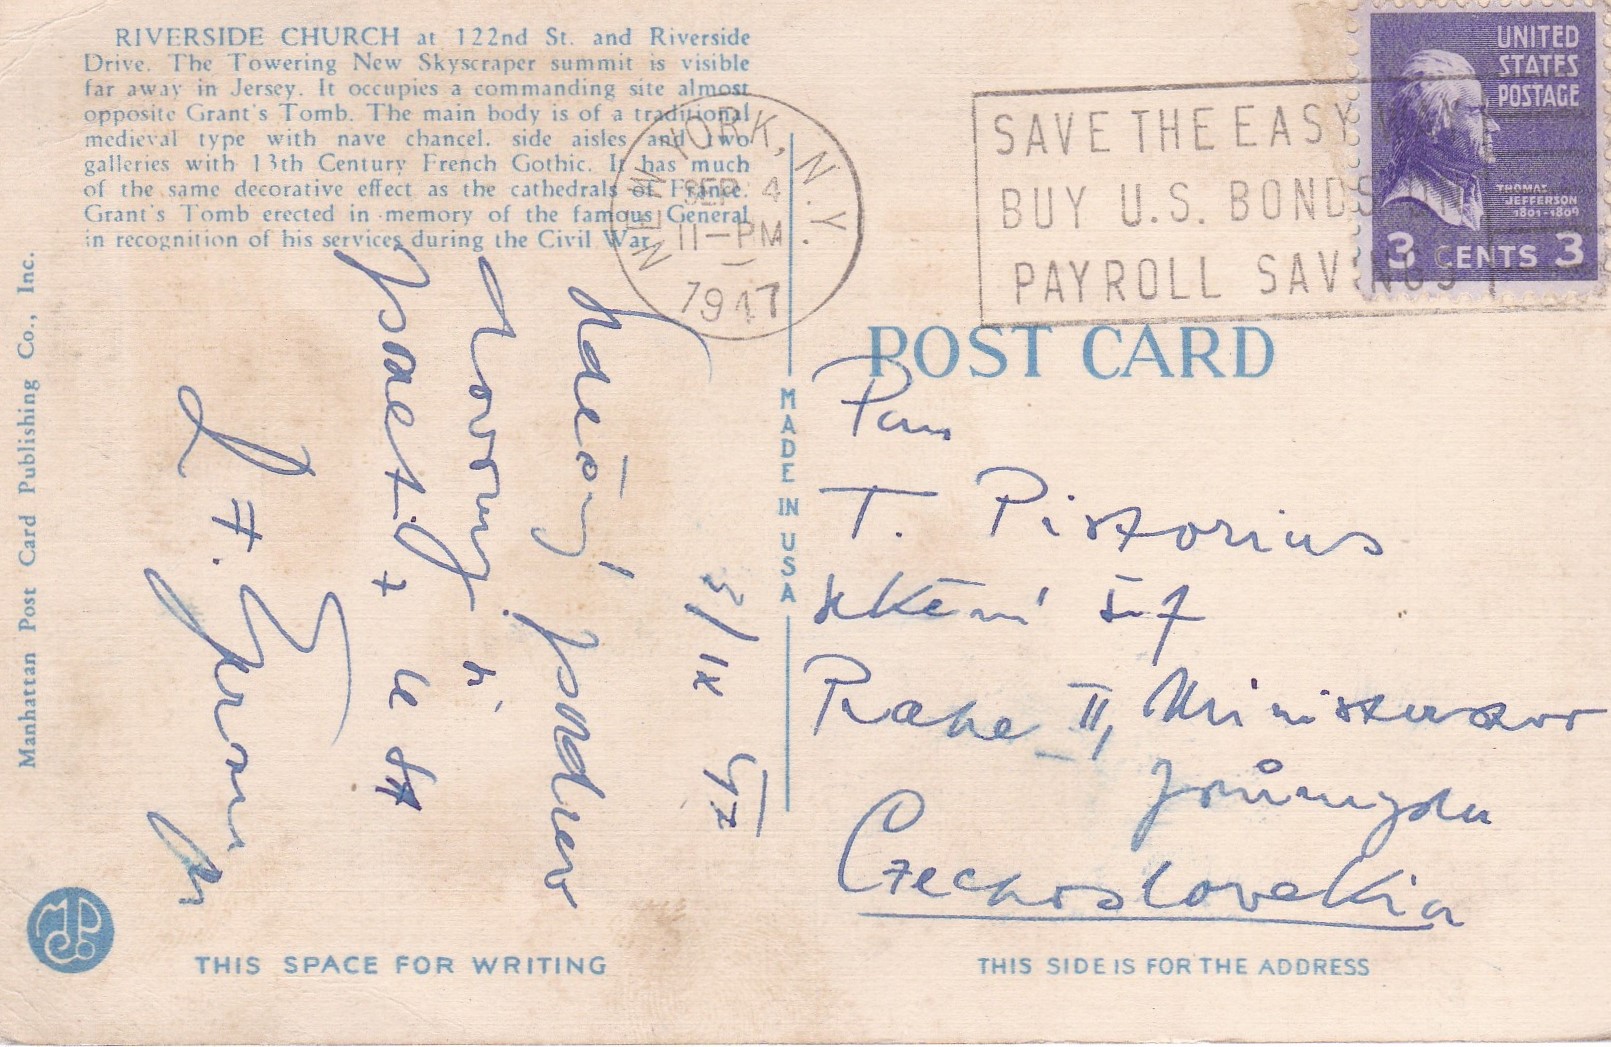 RIVERSIDE CHURCH at 122nd St. and Riverside
Drive. The Towering New Skyscraper summit is visible
far away in Jersey. It occupies a commanding site almost
opposite Grant's Tomb. The main body is of a traditional
medieval type with nave chancel. side aisles and two
galleries with 13th Century French Gothic. It has much
of the same decorative effect as the cathedrals of France.
Grant's Tomb erected in memory of the famous General
in recognition of his services during the Civil War.
NEW YORK, N.Y.
SEP 4
11-PM
1947
SAVE THE EASY WAY
BUY U.S. BONDS
PAYROLL SAVINGS
UNITED
STATES
POSTAGE
THOMAS
JEFFERSON
1801-1809
3 CENTS 3
POST CARD
Manhattan Post Card Publishing Co., Inc.
MADE IN USA
3/IX 47
Srdečný pozdrav
Pan
T. Pistorius
šéf
Praha II, Ministerstvo
průmyslu
Czechoslovakia
THIS SPACE FOR WRITING
THIS SIDE IS FOR THE ADDRESS